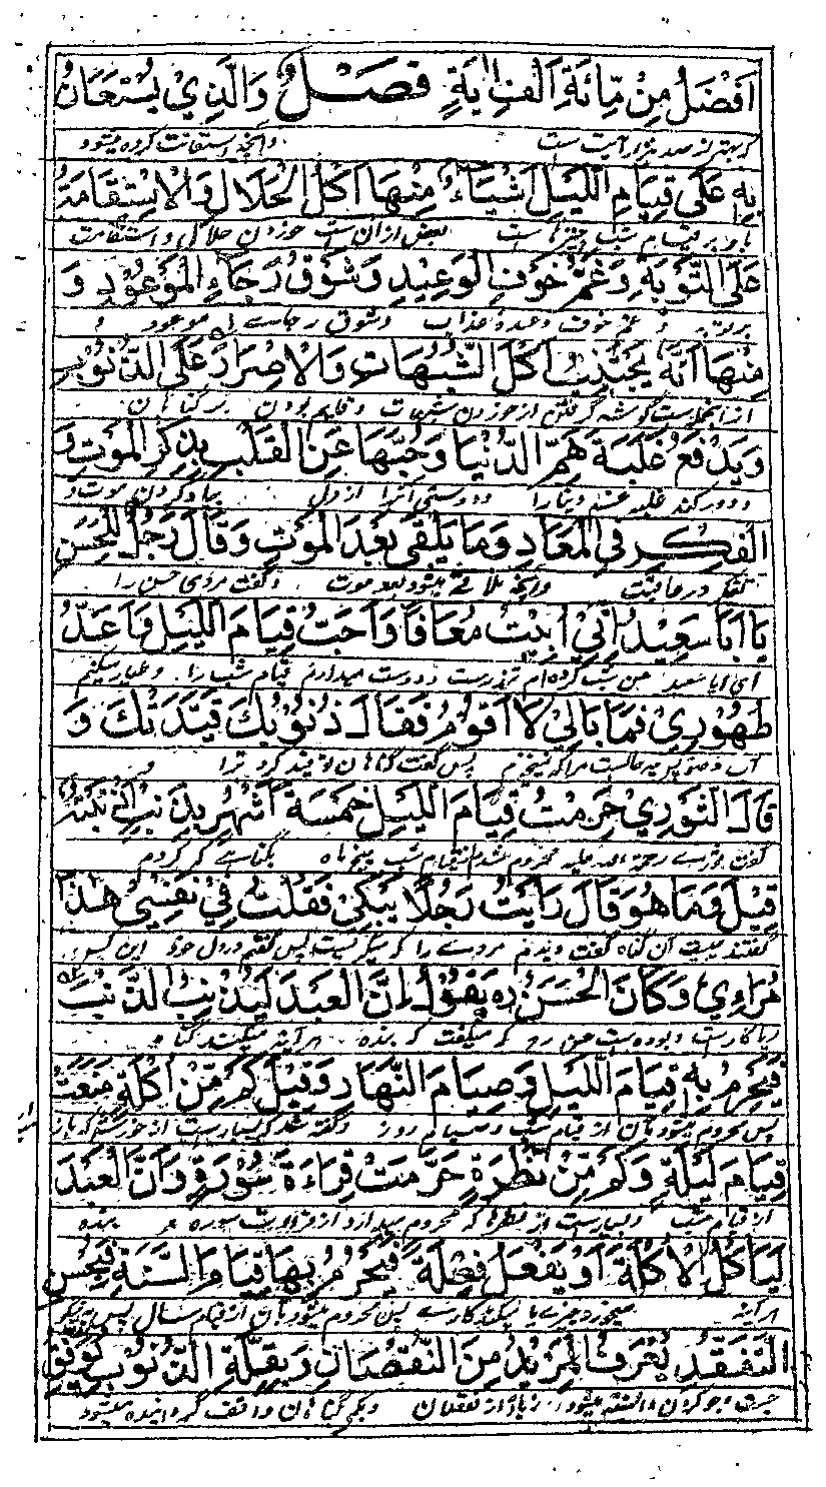 اَفْضَلُ مِنْ مِّائَةِ اَلْفِ اٰيَةٍ فَصْلٌ وَالَّذِيْ يُسْتَعَانُ
که بهتر از صد هزار آیت است وانچه استعانت کرده میشود
بِهٖ عَلٰى قِيَامِ اللَّيْلِ اَشْيَاءُ مِنْهَا اَكْلُ الْحَلَالِ وَالْاِسْتِقَامَةُ
باو بر قیام شب چیزها است بعض ازان است خوردن حلال و استقامت
عَلَى التَّوْبَةِ وَغَمُّ خَوْفِ الْوَعِيْدِ وَشَوْقُ رَجَاءِ الْمَوْعُوْدِ وَ
بر توبه و غم خوف وعده عذاب و شوق رجاے موعود و
مِنْهَا اَنَّهٗ يَجْتَنِبُ اَكْلَ الشُّبُهَاتِ وَالْاِصْرَارَ عَلَى الذُّنُوْبِ
ازانجمله است گوشه گرفتن از خوردن شبهات و قایم بودن بر گناهان
وَيَدْفَعُ غَلَبَةَ هَمِّ الدُّنْيَا وَحُبِّهَا عَنِ الْقَلْبِ بِذِكْرِ الْمَوْتِ وَ
و دور کند غلبه غم دنیا را و دوستی آنرا از دل بیاد کردن موت و
الْفِكْرِ فِي الْمَعَادِ وَمَا يَلْقٰى بَعْدَ الْمَوْتِ وَقَالَ رَجُلٌ لِلْحَسَنِ
تفکر در عاقبت وانچه ملاقی میشود بعد موت و گفت مردی حسن را
يَا اَبَا سَعِيْدٍ اِنِّيْ اَبِيْتُ مُعَافًا وَاُحِبُّ قِيَامَ اللَّيْلِ وَاُعِدُّ
ای ابا سعید من شب کرده ام تندرست و دوست میدارم قیام شب را و طیار میکنم
طَهُوْرِيْ فَمَا بَالِيْ لَا اَقُوْمُ فَقَالَ ذُنُوْبُكَ قَيَّدَتْكَ وَ
آب وضو پس چه حالست مرا که نیخیزم پس گفت گناهان تو بند کرد ترا و
قَالَ الثَّوْرِيُّ حُرِمْتُ قِيَامَ اللَّيْلِ خَمْسَةَ اَشْهُرٍ بِذَنْبٍ اَذْنَبْتُهٗ
گفت ثوری رحمة الله علیه محروم شدم از قیام شب پنج ماه بگناهے که کردم
قِيْلَ وَمَا هُوَ قَالَ رَاَيْتُ رَجُلًا يَبْكِيْ فَقُلْتُ فِيْ نَفْسِيْ هٰذَا
گفتند چیست آن گناه گفت دیدم مردے را که میگریست پس گفتم در دل خود این کس
مُرَاءٍ وَكَانَ الْحَسَنُ رہ يَقُوْلُ اِنَّ الْعَبْدَ لَيُذْنِبُ الذَّنْبَ
ریاکار است و بوده است حسن رہ که میگفت که بنده هر آینه میکند گناه
فَيُحْرَمُ بِهٖ قِيَامَ اللَّيْلِ وَصِيَامَ النَّهَارِ وَقِيْلَ كَمْ مِّنْ اَكْلَةٍ مَنَعَتْ
پس محروم میشود بآن از قیام شب و صیام روز و گفته شد که بسیار است از خوردنی که باز
قِيَامَ لَيْلَةٍ وَكَمْ مِّنْ نَظْرَةٍ حَرَمَتْ قِرَاءَةَ سُوْرَةٍ وَاَنَّ الْعَبْدَ
از قیام شب و بسیار است از نظرها که محروم میدارد از قراءت سوره و بنده
لَيَاْكُلُ الْاَكْلَةَ اَوْ يَفْعَلُ فِعْلَةً فَيُحْرَمُ بِهَا قِيَامَ السَّنَةِ فَبِحُسْنِ
هر آینه میخورد چیزے یا میکند کارے پس محروم میشود بآن از قیام سال پس
التَّفَقُّدِ يُعْرَفُ الْمَزِيْدُ مِنَ النُّقْصَانِ وَبِقِلَّةِ الذُّنُوْبِ يُوْقَفُ
جست وجو کردن دانسته میشود زیاد از نقصان و بکم گناهان واقف گردانیده میشود